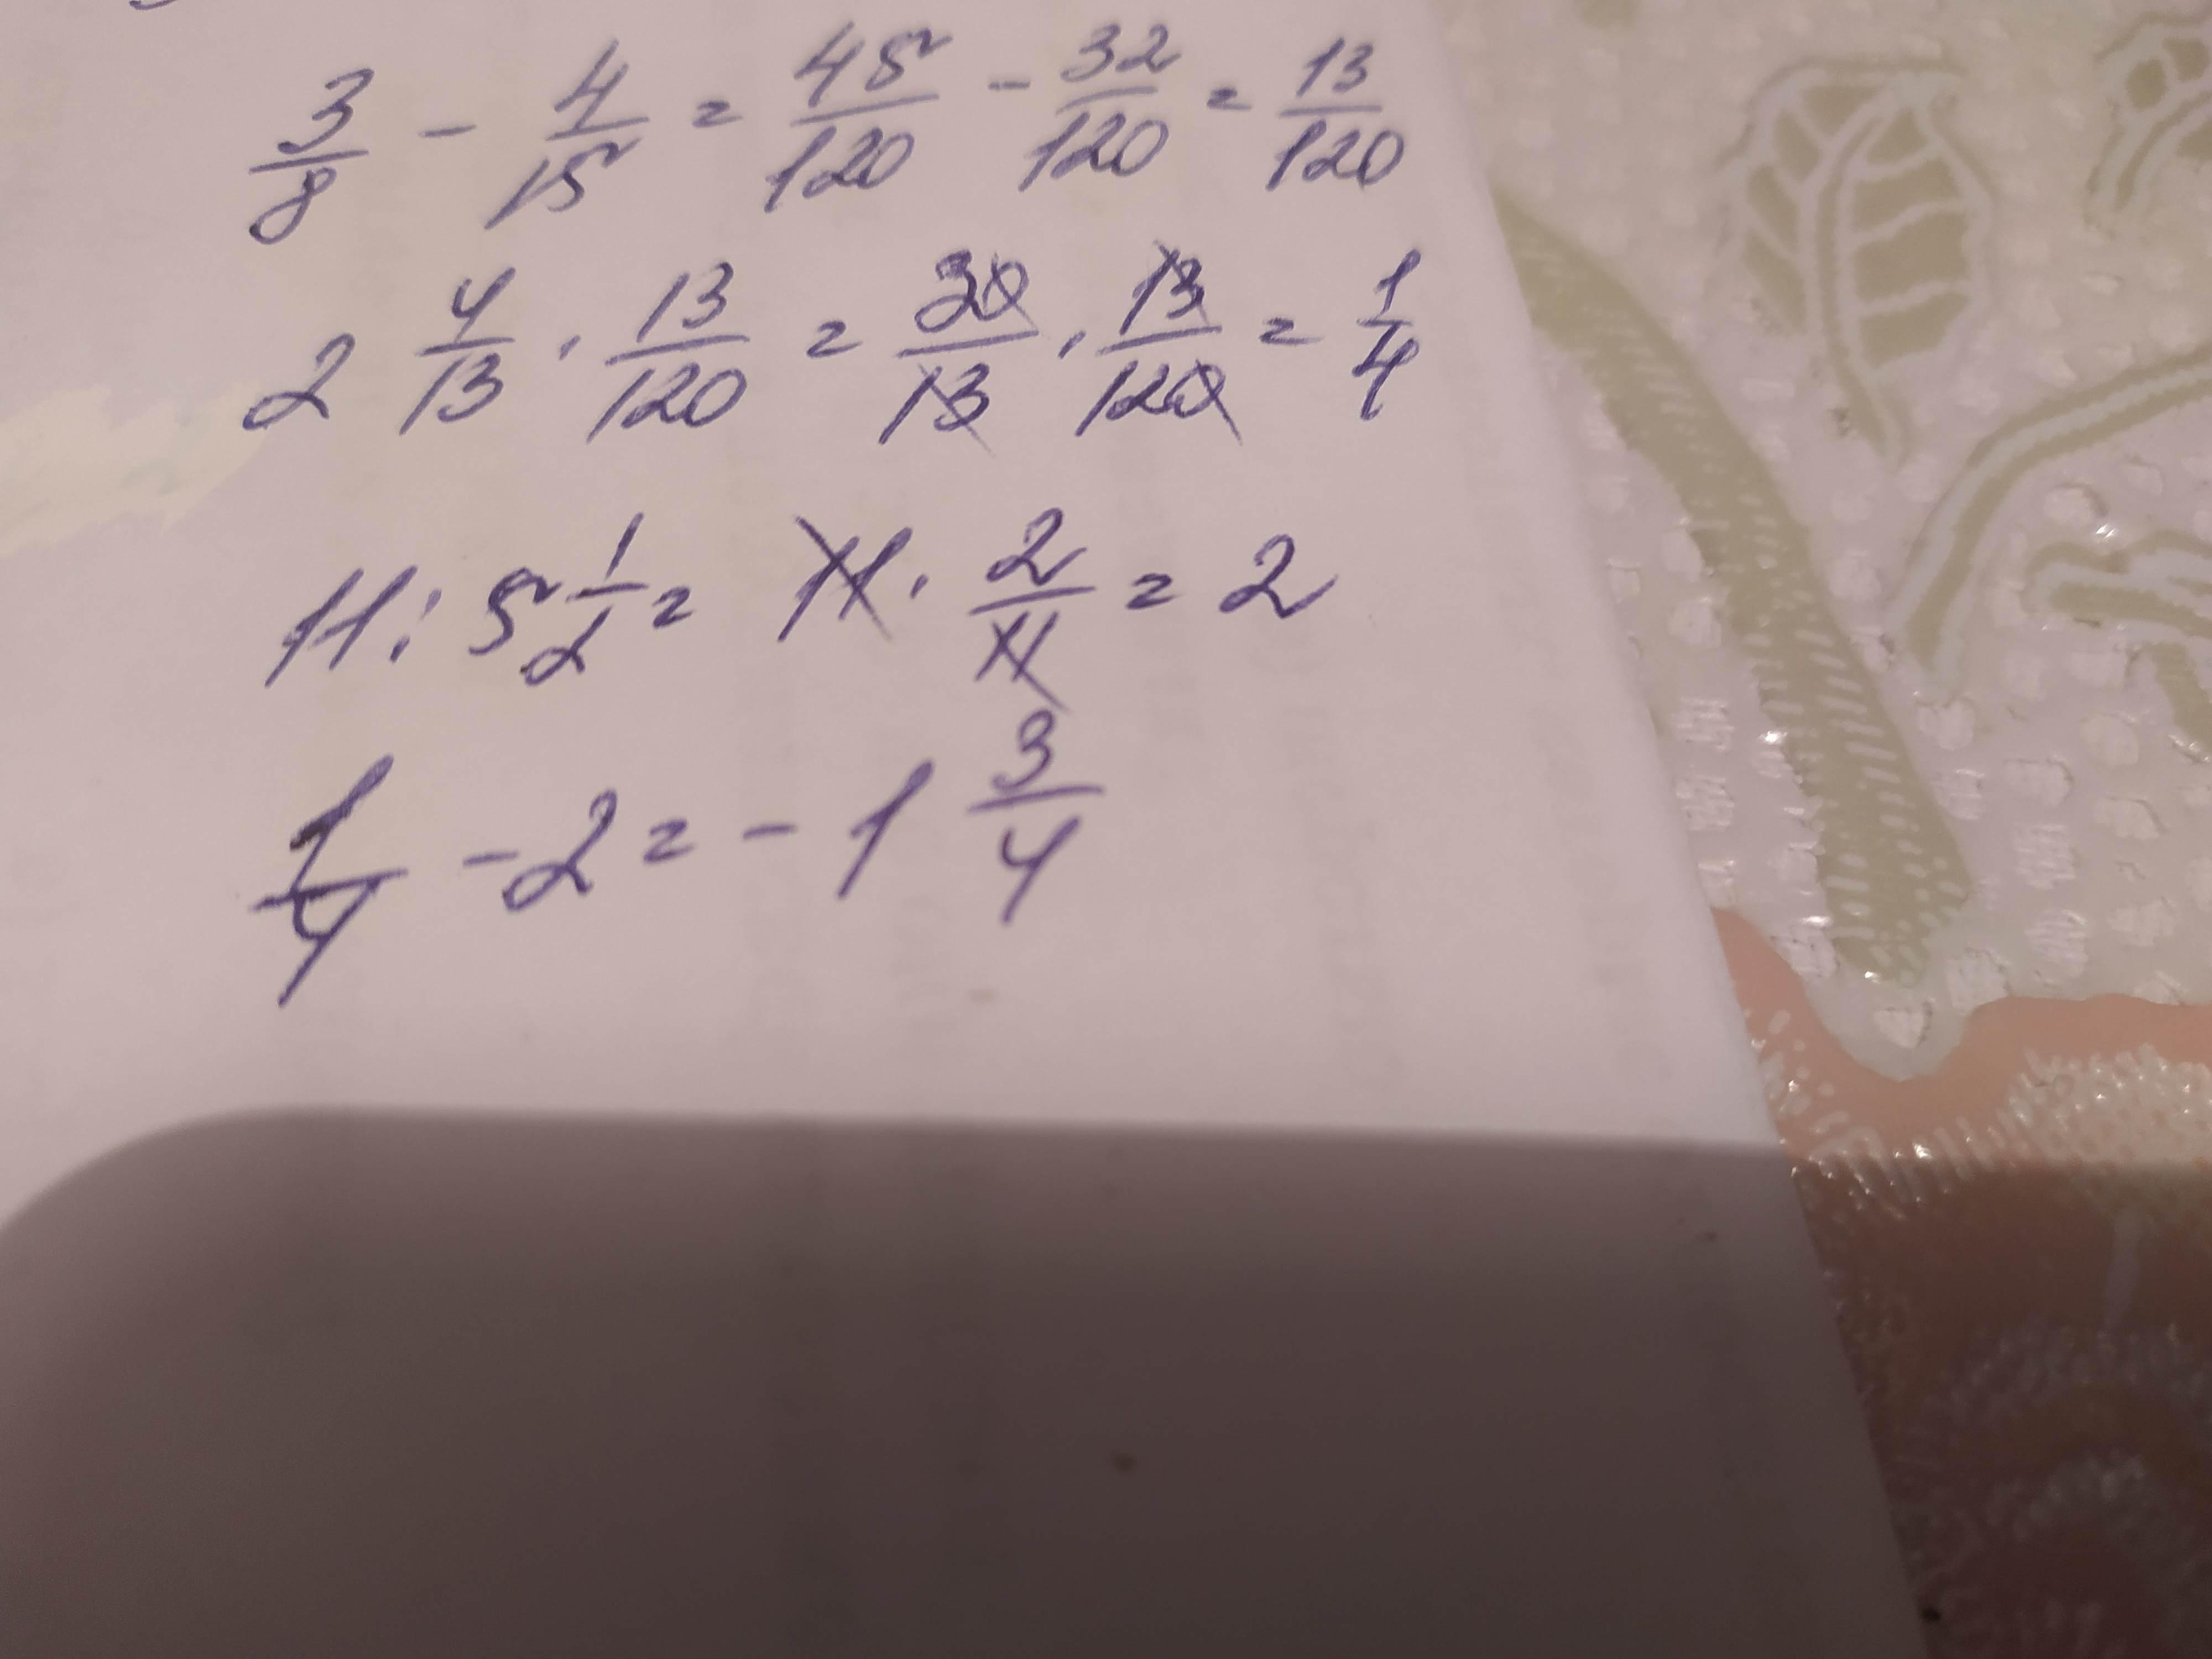 3/8 - 4/15 = 45/120 - 32/120 = 13/120
2 4/13 · 13/120 = 30/13 · 13/120 = 1/4
11 : 5 1/2 = 11 · 2/11 = 2
1/4 - 2 = - 1 3/4